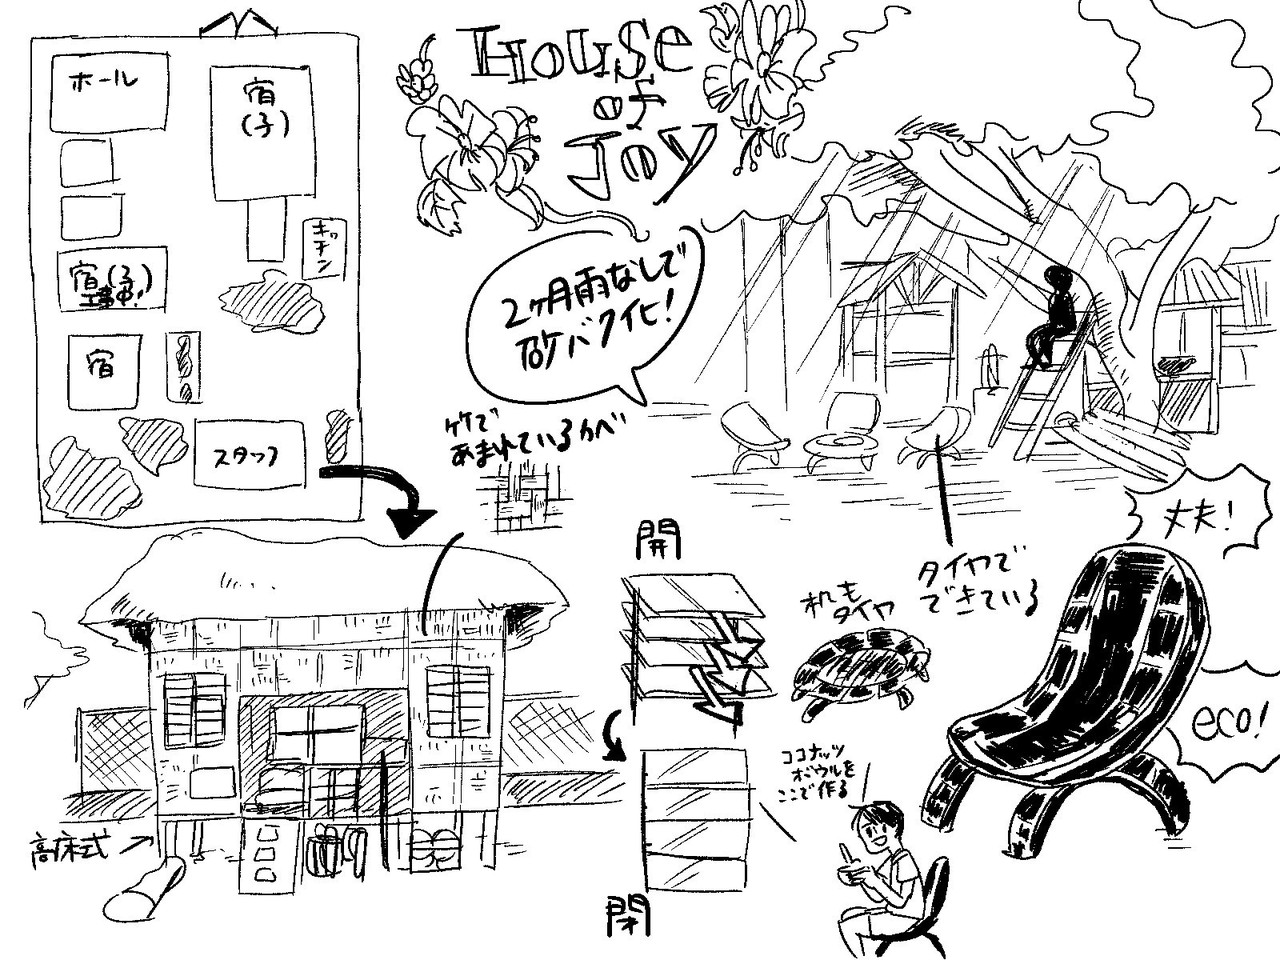 House
of
Joy
ホール
宿
(子)
キッ
チン
宿(子)
工事中!
宿
スタッフ
2ヶ月雨なしで
砂バク化!
竹で
あまれているかべ
開
閉
机も
タイヤ
タイヤで
できている
丈夫!
eco!
ココナッツ
ボウルを
ここで作る
高床式